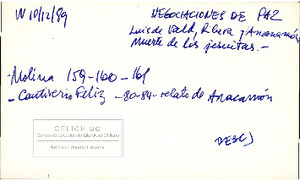 W 10/12/89
NEGOCIACIONES DE PAZ
Luis de Vald, Ribera y Anacamón
Muerte de los jesuitas.-
-Molina 159-160-161
-Cautiverio Feliz -80-84-relato de Anacamón
CELICH UC
DESC)